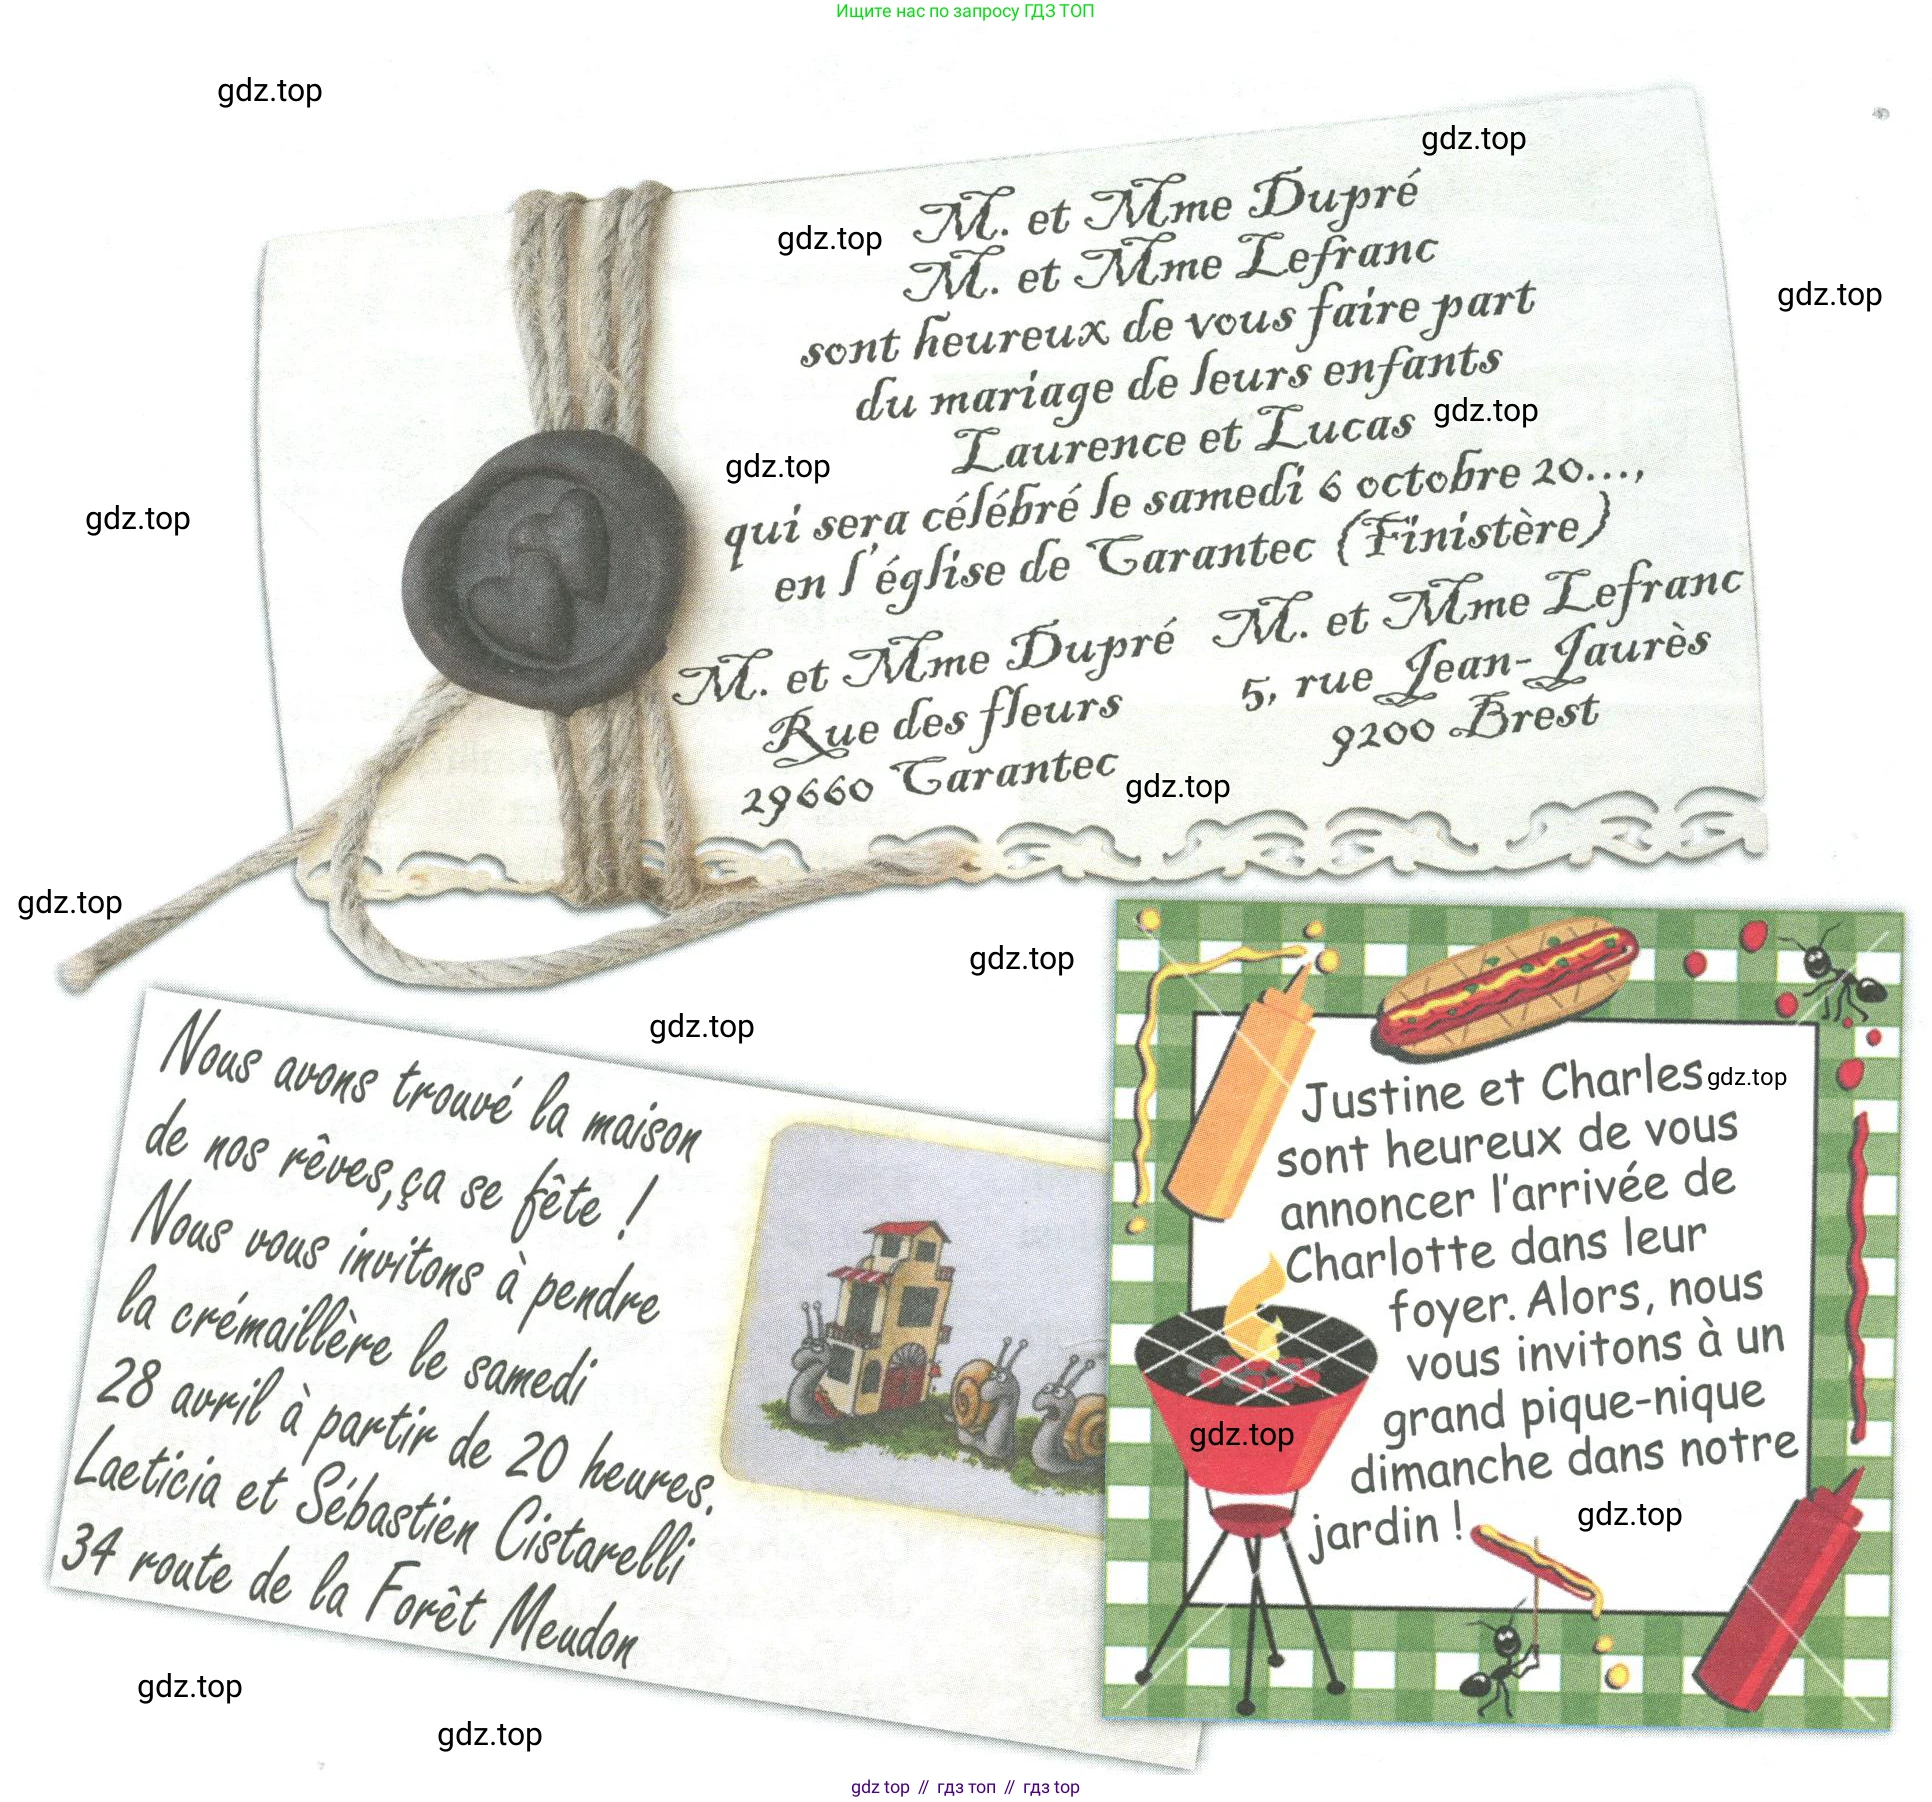 Ищите нас по запросу ГДЗ ТОП
gdz.top
gdz.top
M. et Mme Dupré
gdz.top
M. et Mme Lefranc
gdz.top
sont heureux de vous faire part
du mariage de leurs enfants
Laurence et Lucas
gdz.top
gdz.top
qui sera célébré le samedi 6 octobre 20...,
gdz.top
en l'église de Carantec (Finistère)
M. et Mme Dupré
Rue des fleurs
29660 Carantec
M. et Mme Lefranc
5, rue Jean-Jaurès
9200 Brest
gdz.top
gdz.top
gdz.top
gdz.top
Nous avons trouvé la maison
de nos rêves, ça se fête !
Nous vous invitons à pendre
la crémaillère le samedi
28 avril à partir de 20 heures.
Laeticia et Sébastien Cistarelli
34 route de la Forêt Meudon
Justine et Charles
gdz.top
sont heureux de vous
annoncer l'arrivée de
Charlotte dans leur
foyer. Alors, nous
vous invitons à un
grand pique-nique
gdz.top
dimanche dans notre
jardin !
gdz.top
gdz.top
gdz.top
gdz top // гдз топ // гдз top